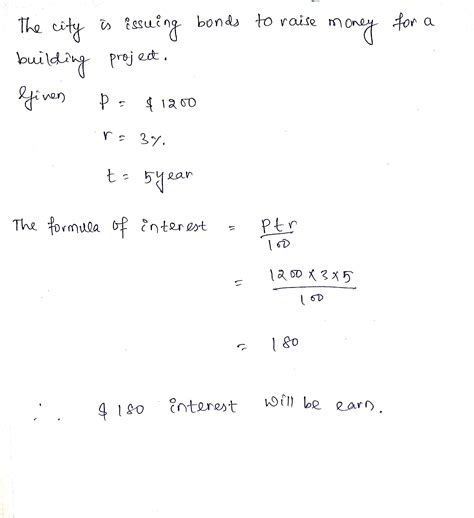 The city is issuing bonds to raise money for a
building project.
Given P = $ 1200
r = 3%.
t = 5year
The formula of interest = Ptr/100
= 1200 x 3 x 5/100
= 180
∴ $ 180 interest will be earn.